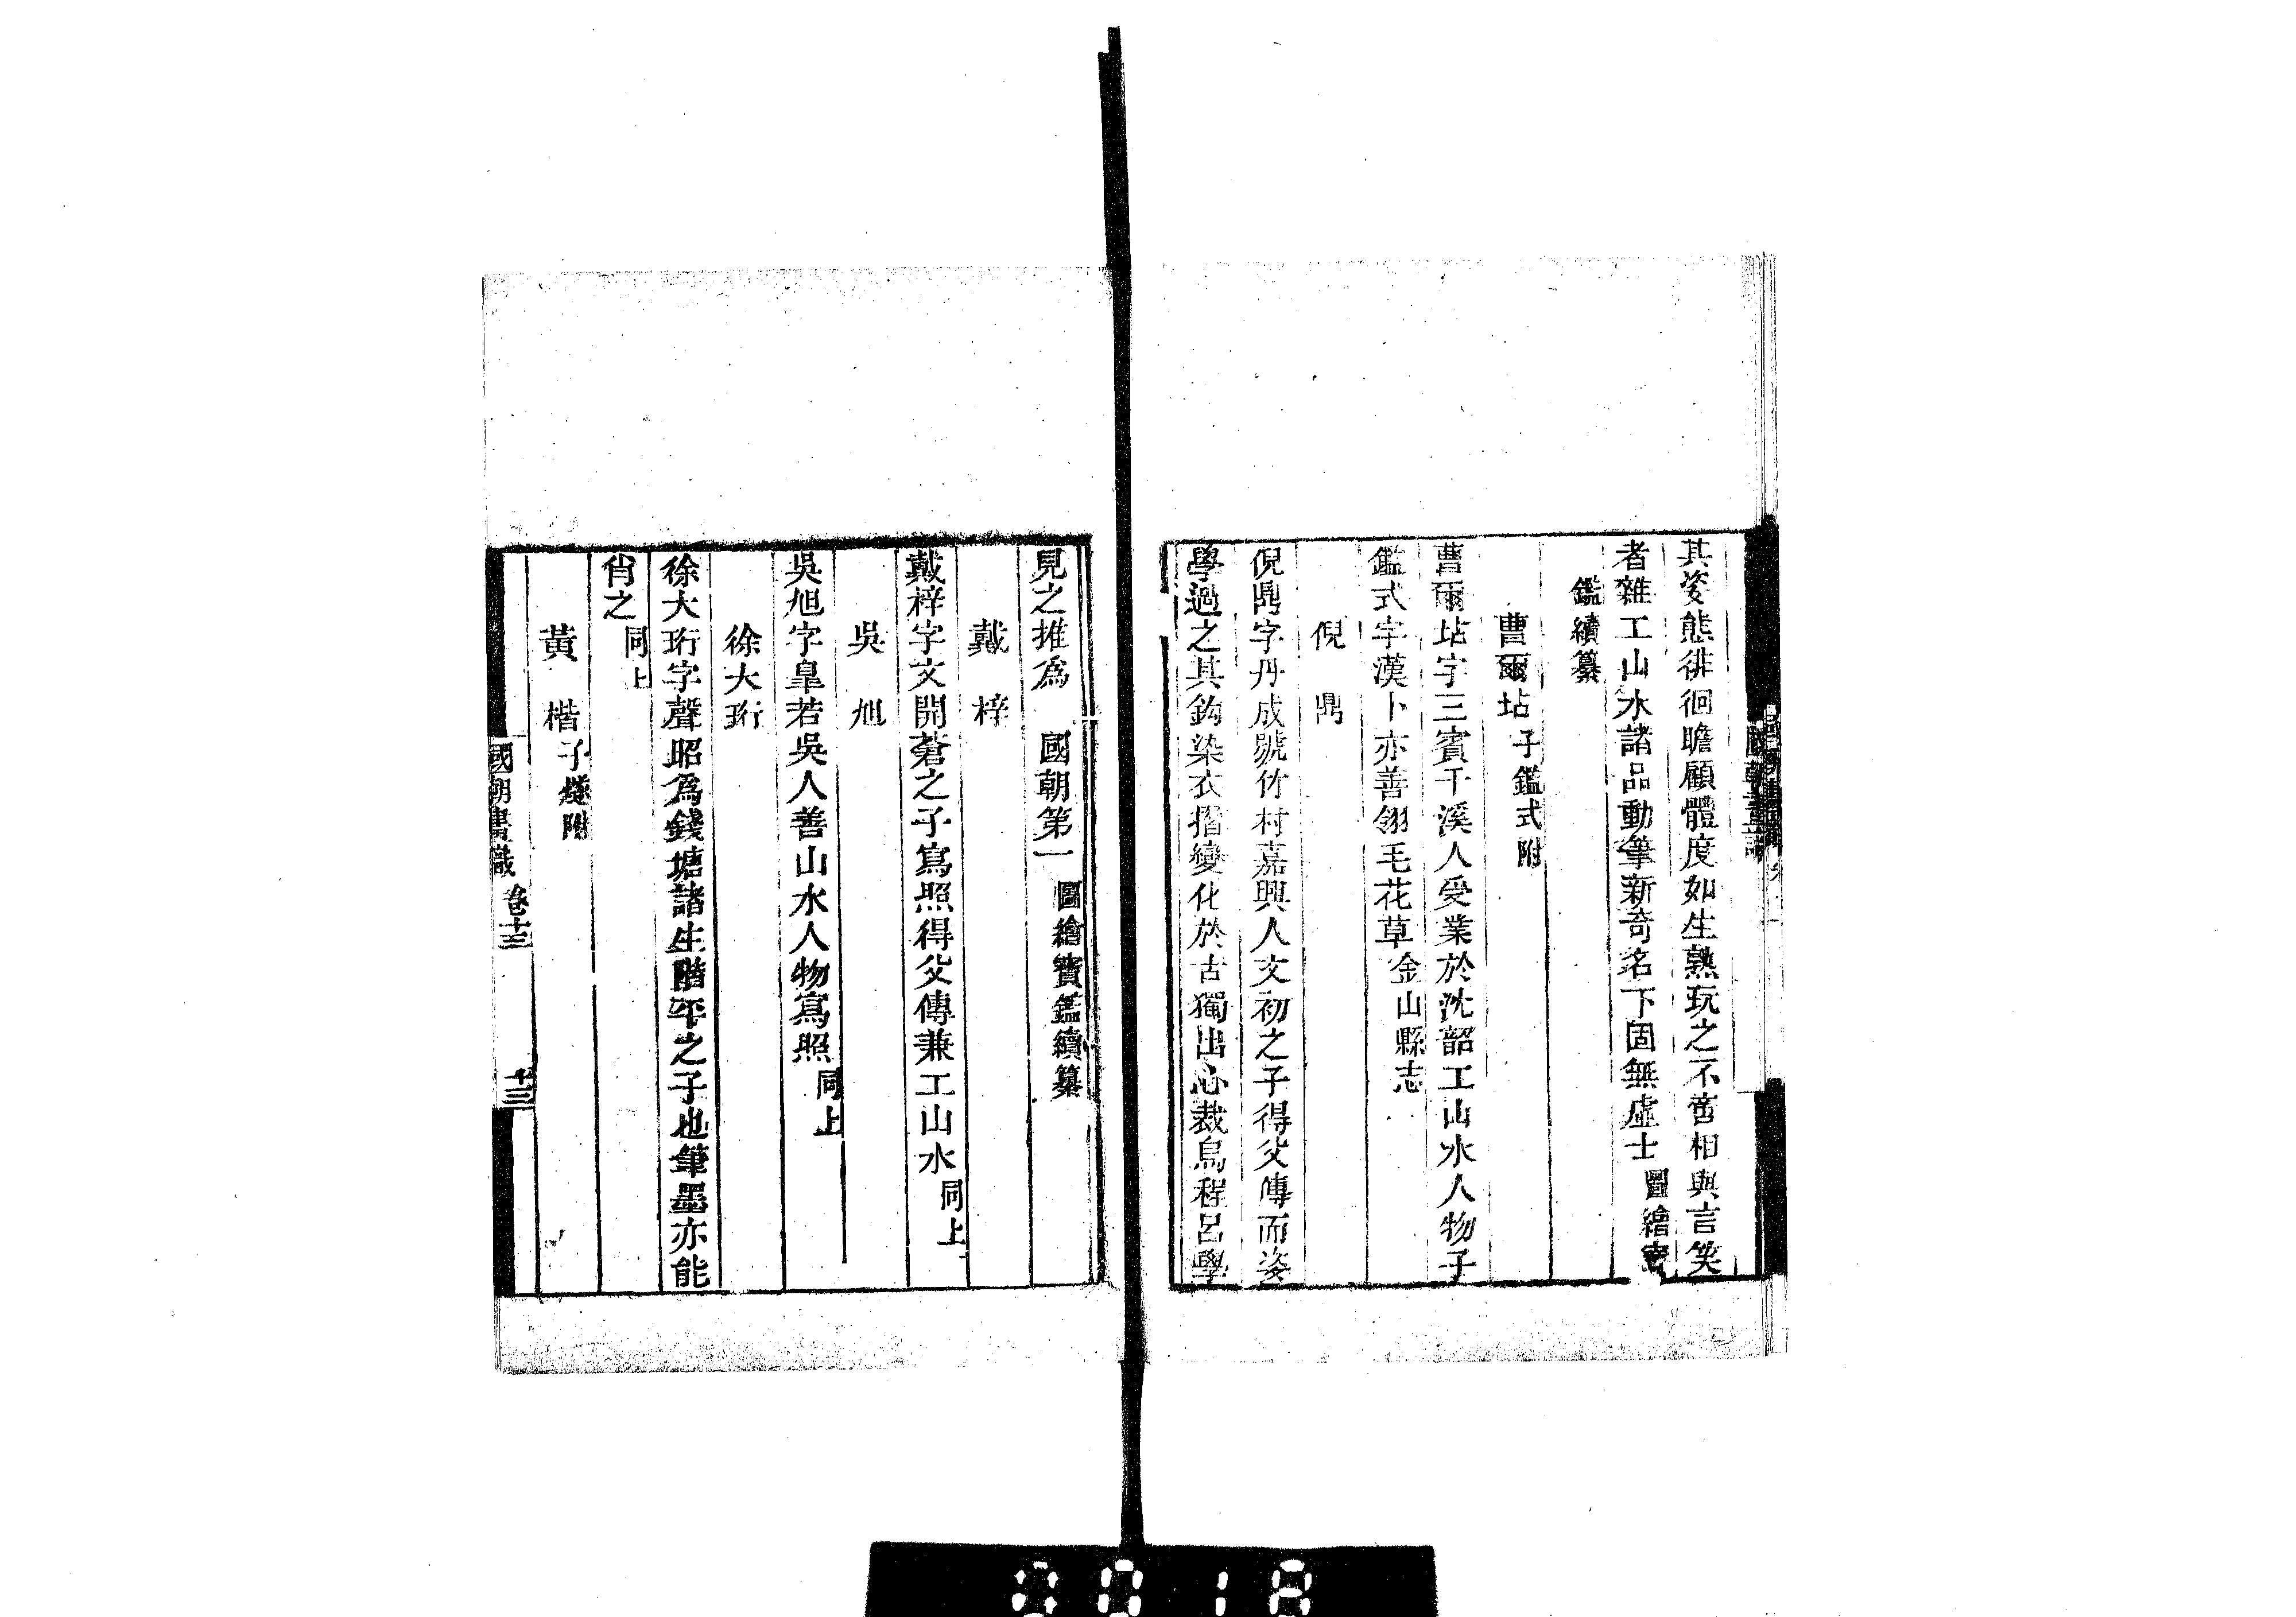 其姿態徘徊瞻顧體度如生熟玩之不啻相與言笑
者雜工山水諸品動筆新奇名下固無虛士圖繪寶
鑑續纂
曹爾坫子鑑式附
曹爾坫字三賓干溪人受業於沈韶工山水人物子
鑑式字漢卜亦善翎毛花草金山縣志
倪鼎
倪鼎字丹成號竹村嘉興人文初之子得父傳而姿
學過之其鈎染衣摺變化於古獨出心裁烏程呂學
見之推為 國朝第一圖繪寶鑑續纂
戴梓
戴梓字文開蒼之子寫照得父傳兼工山水同上
吳旭
吳旭字皐若吳人善山水人物寫照同上
徐大珩
徐大珩字聲昭為錢塘諸生階平之子也筆墨亦能
肖之同上
黃楷子燧附
國朝畫識 卷十三 十三